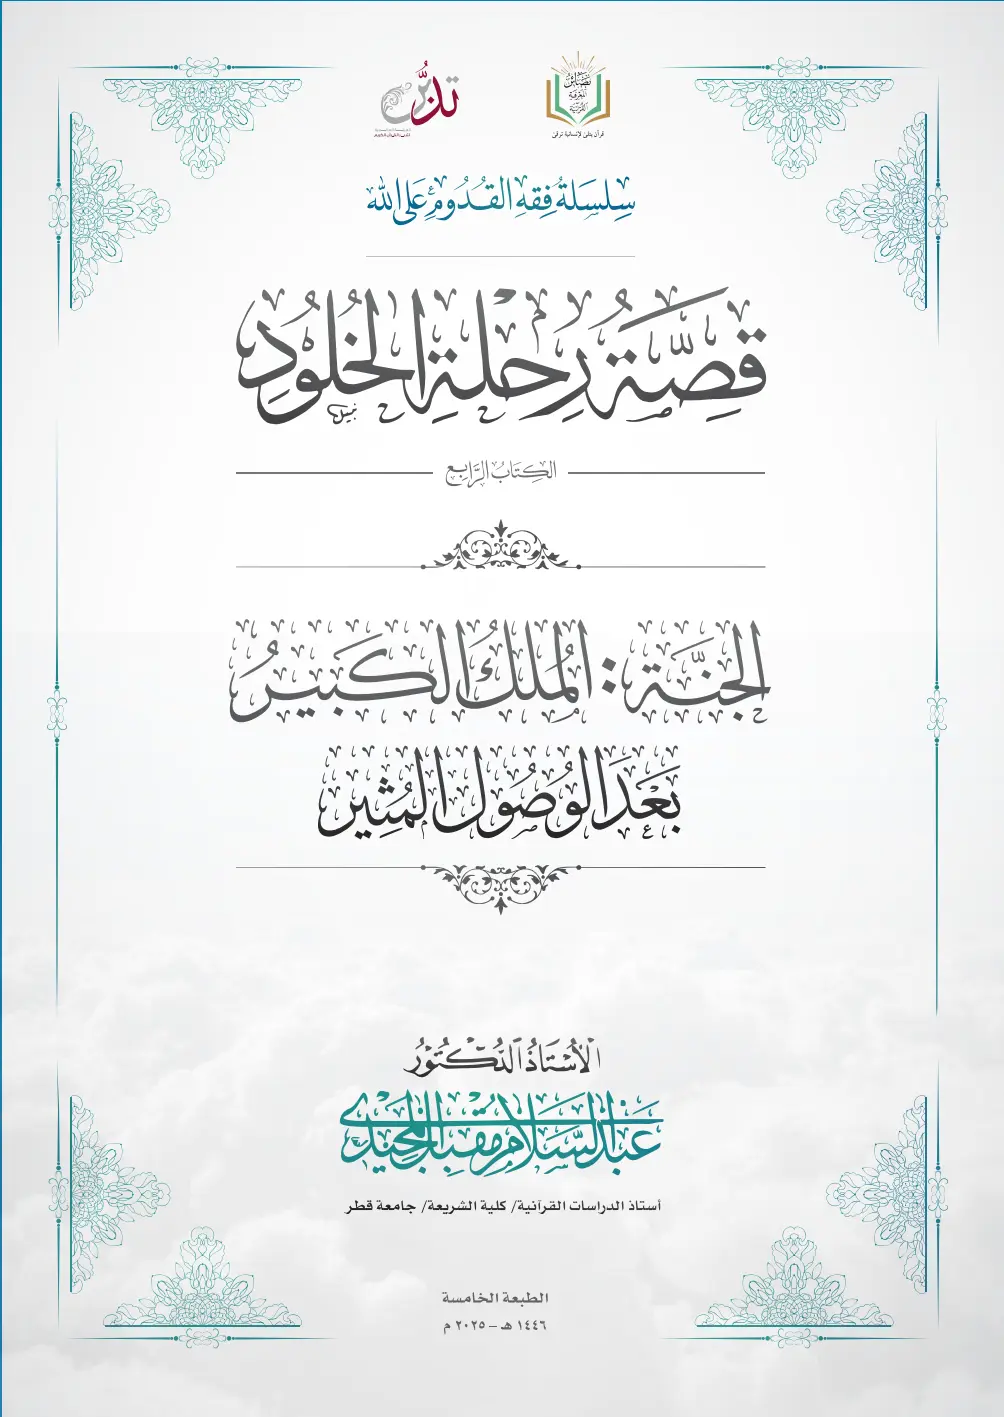 تدبر
بصائر
المعرفة
القرآنية
قرآن يتلى لإنسانية ترقى
سِلسَلَةُ فِقهِ القُدُومِ عَلى الله
قِصَّةُ رِحلَةِ الخُلُودِ
الكِتَابُ الرَّابِع
الجَنَّة: المُلكُ الكَبيرُ
بَعْدَ الوُصُولِ المُثِيرِ
الأُسْتَاذُ الدُّكْتُورُ
عَبدُ السَّلَام مُقبِل المَجِيدي
أستاذ الدراسات القرآنية/ كلية الشريعة/ جامعة قطر
الطبعة الخامسة
١٤٤٦ هـ – ٢٠٢٥ م